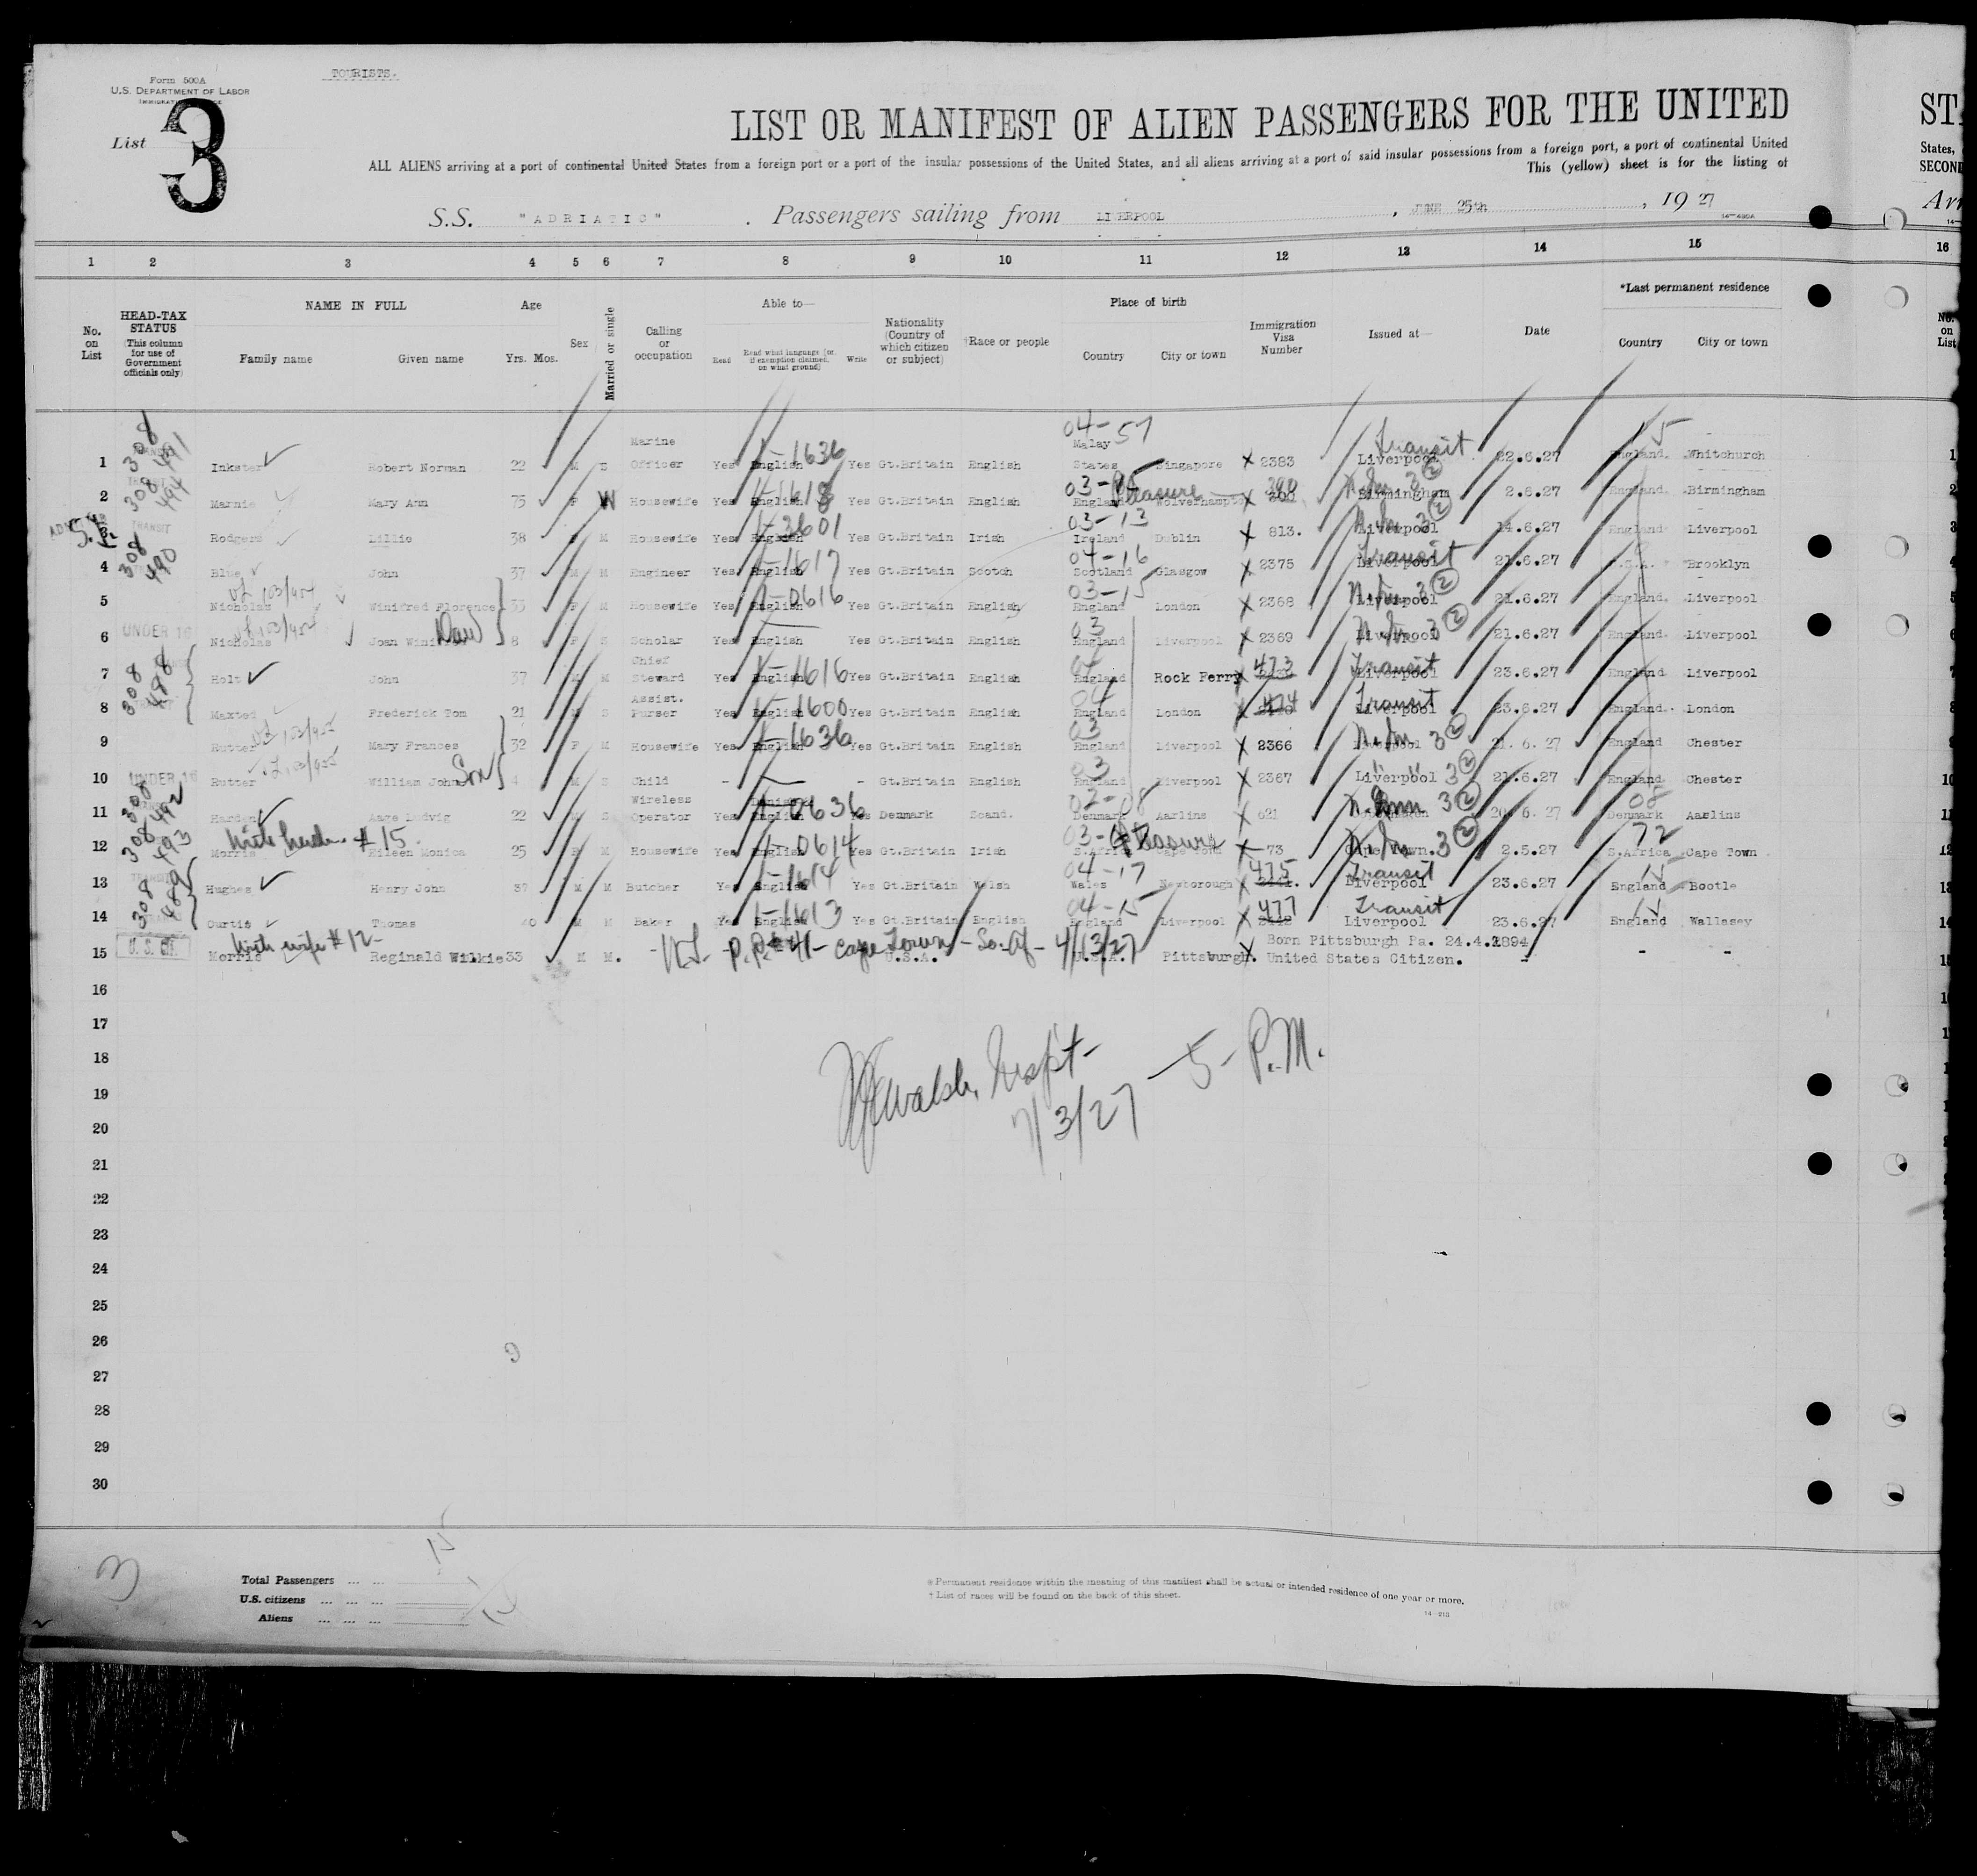 Form 500A
TOURISTS.
U.S. DEPARTMENT OF LABOR
List 3
LIST OR MANIFEST OF ALIEN PASSENGERS FOR THE UNITED
ST
ALL ALIENS arriving at a port of continental United States from a foreign port or a port of the insular possessions of the United States, and all aliens arriving at a port of said insular possessions from a foreign port, a port of continental United
States,
This (yellow) sheet is for the listing of
SECOND
S.S. "ADRIATIC". Passengers sailing from LIVERPOOL, JUNE 25th, 1927
Arr
14-490A
1 2 3 4 5 6 7 8 9 10 11 12 13 14 15 16
No. on List
HEAD-TAX STATUS (This column for use of Government officials only)
NAME IN FULL
Family name Given name
Age
Yrs. Mos.
Sex
Married or single
Calling or occupation
Able to—
Read
Read what language (or, if exemption claimed, on what ground)
Write
Nationality (Country of which citizen or subject)
†Race or people
Place of birth
Country City or town
Immigration Visa Number
Issued at—
Date
*Last permanent residence
Country City or town
No. on List
04-57 Transit 15
1 308 491 Inkster Robert Norman 22 M S Marine Officer Yes English 1-1636 Yes Gt.Britain English Malay States Singapore X 2383 Liverpool 22.6.27 England. Whitchurch 1
2 308 494 Marnie Mary Ann 75 F W Housewife Yes English 1-1618 Yes Gt.Britain English 03-15 England Pleasure Wolverhampton X 200 Birmingham 3 2 2.6.27 England. Birmingham 2
3 TRANSIT Rodgers Lillie 38 F M Housewife Yes English 1-3601 Yes Gt.Britain Irish 03-13 Ireland Dublin X 813. Liverpool 3 2 14.6.27 England Liverpool 3
4 308 490 Blue John 37 M M Engineer Yes English 1-1617 Yes Gt.Britain Scotch 04-16 Scotland Glasgow X 2375 Transit Liverpool 21.6.27 U.S.A. Brooklyn 4
5 Nicholas Winifred Florence 33 F M Housewife Yes English 1-0616 Yes Gt.Britain English 03-15 England London X 2368 Liverpool 3 2 21.6.27 England. Liverpool 5
6 UNDER 16 Nicholas Joan Winifred Dau 8 F S Scholar Yes English Yes Gt.Britain English 03 England Liverpool X 2369 Liverpool 3 2 21.6.27 England. Liverpool 6
7 308 488 Holt John 37 M M Chief Steward Yes English 1-1616 Yes Gt.Britain English 04 England Rock Ferry X 473 Transit Liverpool 23.6.27 England Liverpool 7
8 Maxted Frederick Tom 21 M S Assist. Purser Yes English 1600 Yes Gt.Britain English 04 England London X 474 Transit Liverpool 23.6.27 England. London 8
9 Rutter Mary Frances 32 F M Housewife Yes English 1-1636 Yes Gt.Britain English 03 England Liverpool X 2366 Liverpool 3 2 21.6.27 England Chester 9
10 UNDER 16 Rutter William John Son 4 M S Child - — - Gt.Britain English 03 England Liverpool X 2367 Liverpool 3 2 21.6.27 England Chester 10
11 308 492 Harden Aage Ludvig 22 M S Wireless Operator Yes English 0636 Yes Denmark Scand. 02-08 Denmark Aarlins X 621 3 2 20.6.27 08 Denmark Aarlins 11
With husb. #15
12 308 493 Morris Eileen Monica 25 F M Housewife Yes English 1-0614 Yes Gt.Britain Irish S.Africa Pleasure Cape Town X 73 Cape Town. 3 2 2.5.27 72 S.Africa Cape Town 12
13 308 489 Hughes Henry John 37 M M Butcher Yes English 1-1614 Yes Gt.Britain Welsh 04-17 Wales Newborough X 475 Transit Liverpool 23.6.27 15 England Bootle 13
14 Curtis Thomas 40 M M Baker Yes English 1-1613 Yes Gt.Britain English 04-15 England Liverpool X 477 Transit Liverpool 23.6.27 15 England Wallasey 14
With wife #12-
P.P. #41- Cape Town - So. Af - 4/13/27
Born Pittsburgh Pa. 24.4.1894
15 U. S. CIT. Morris Reginald Wilkie 33 M M. U.S.A. U.S.A. Pittsburgh. X United States Citizen. - - - 15
16
17
18
19
20
21
22
23
24
25
26
27
28
29
30
Walsh, Inspt-
7/3/27 - 5- P.M.
3
15
Total Passengers
U.S. citizens
Aliens
* Permanent residence within the meaning of this manifest shall be actual or intended residence of one year or more.
† List of races will be found on the back of this sheet.
14-213